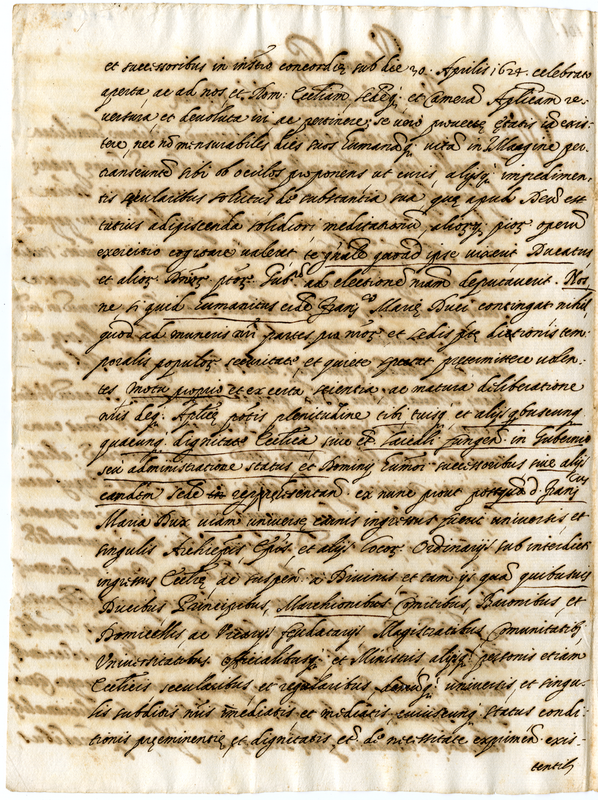 et successoribus in instro concordię sub die 30. Aprilis 1624. celebrato
aperta ac ad nos et Rom: Ecclĩam Sedeq; et Camerã Aplicam re-
versura et devoluta iri ac pertinere; se vero provectę ętatis iã exis-
tere, nec nõ mensurabiles dies suos humanãq; vitã in imagine per-
transeuntẽ sibi ob oculos proponens ut curis, alijsq; impedimen-
tis secularibus solutus de substantia sua quę apud Deũ est
adipiscenda solidiori meditationi alior; pior; operũ
exercitio cogitare valeat te gñalẽ quoad ipse vixerit Ducatus
et alior. ptor. Gub.rẽ ad electionẽ nram deputaverit. Nos
ne, si quid humanitus eidẽ Franc.co Marię Duci contingat nihil
quod ad muneris nri partes pro nõr. et Sedis ptę ditionis tem-
poralis populor. securitate et quiete spectant prętermittere volen-
tes. Motu proprio et ex certa scientia ac matura deliberatione
nris deq; Aplicę potis plenitudine tibi tuisq; et alijs qbuscunq;
quacunq; dignitate Ecclica sive et fungen. in Gubernio
seu administratione status et Dominij humõi successoribus sive alijs
eandem Sedẽ repręsentan. ex nunc prout postquã d. Franc.cus
Maria Dux viam universę carnis ingressus fuerit universis et
singulis Archiepis Epis, et alijs locor. Ordinarijs sub interdicti
ingressus Ecclię, ac suspen. a Divinis et tam ijs quã quibusvis
Ducibus Principibus, Marchionibus Comitibus, Baronibus et
Domicellis, ac Vicarijs feudatarijs Magistratibus Comunitatib;
Universitatibus. Officialibusq; et Ministris alijsq; personis etiam
Ecclicis secularibus et regularibus deniq; universis et singu-
lis subditis nris imediatis et mediatis cuiuscunq; status condi-
tionis pręminentię et dignitatis et de necessitate exprimen. exis-
tentib;